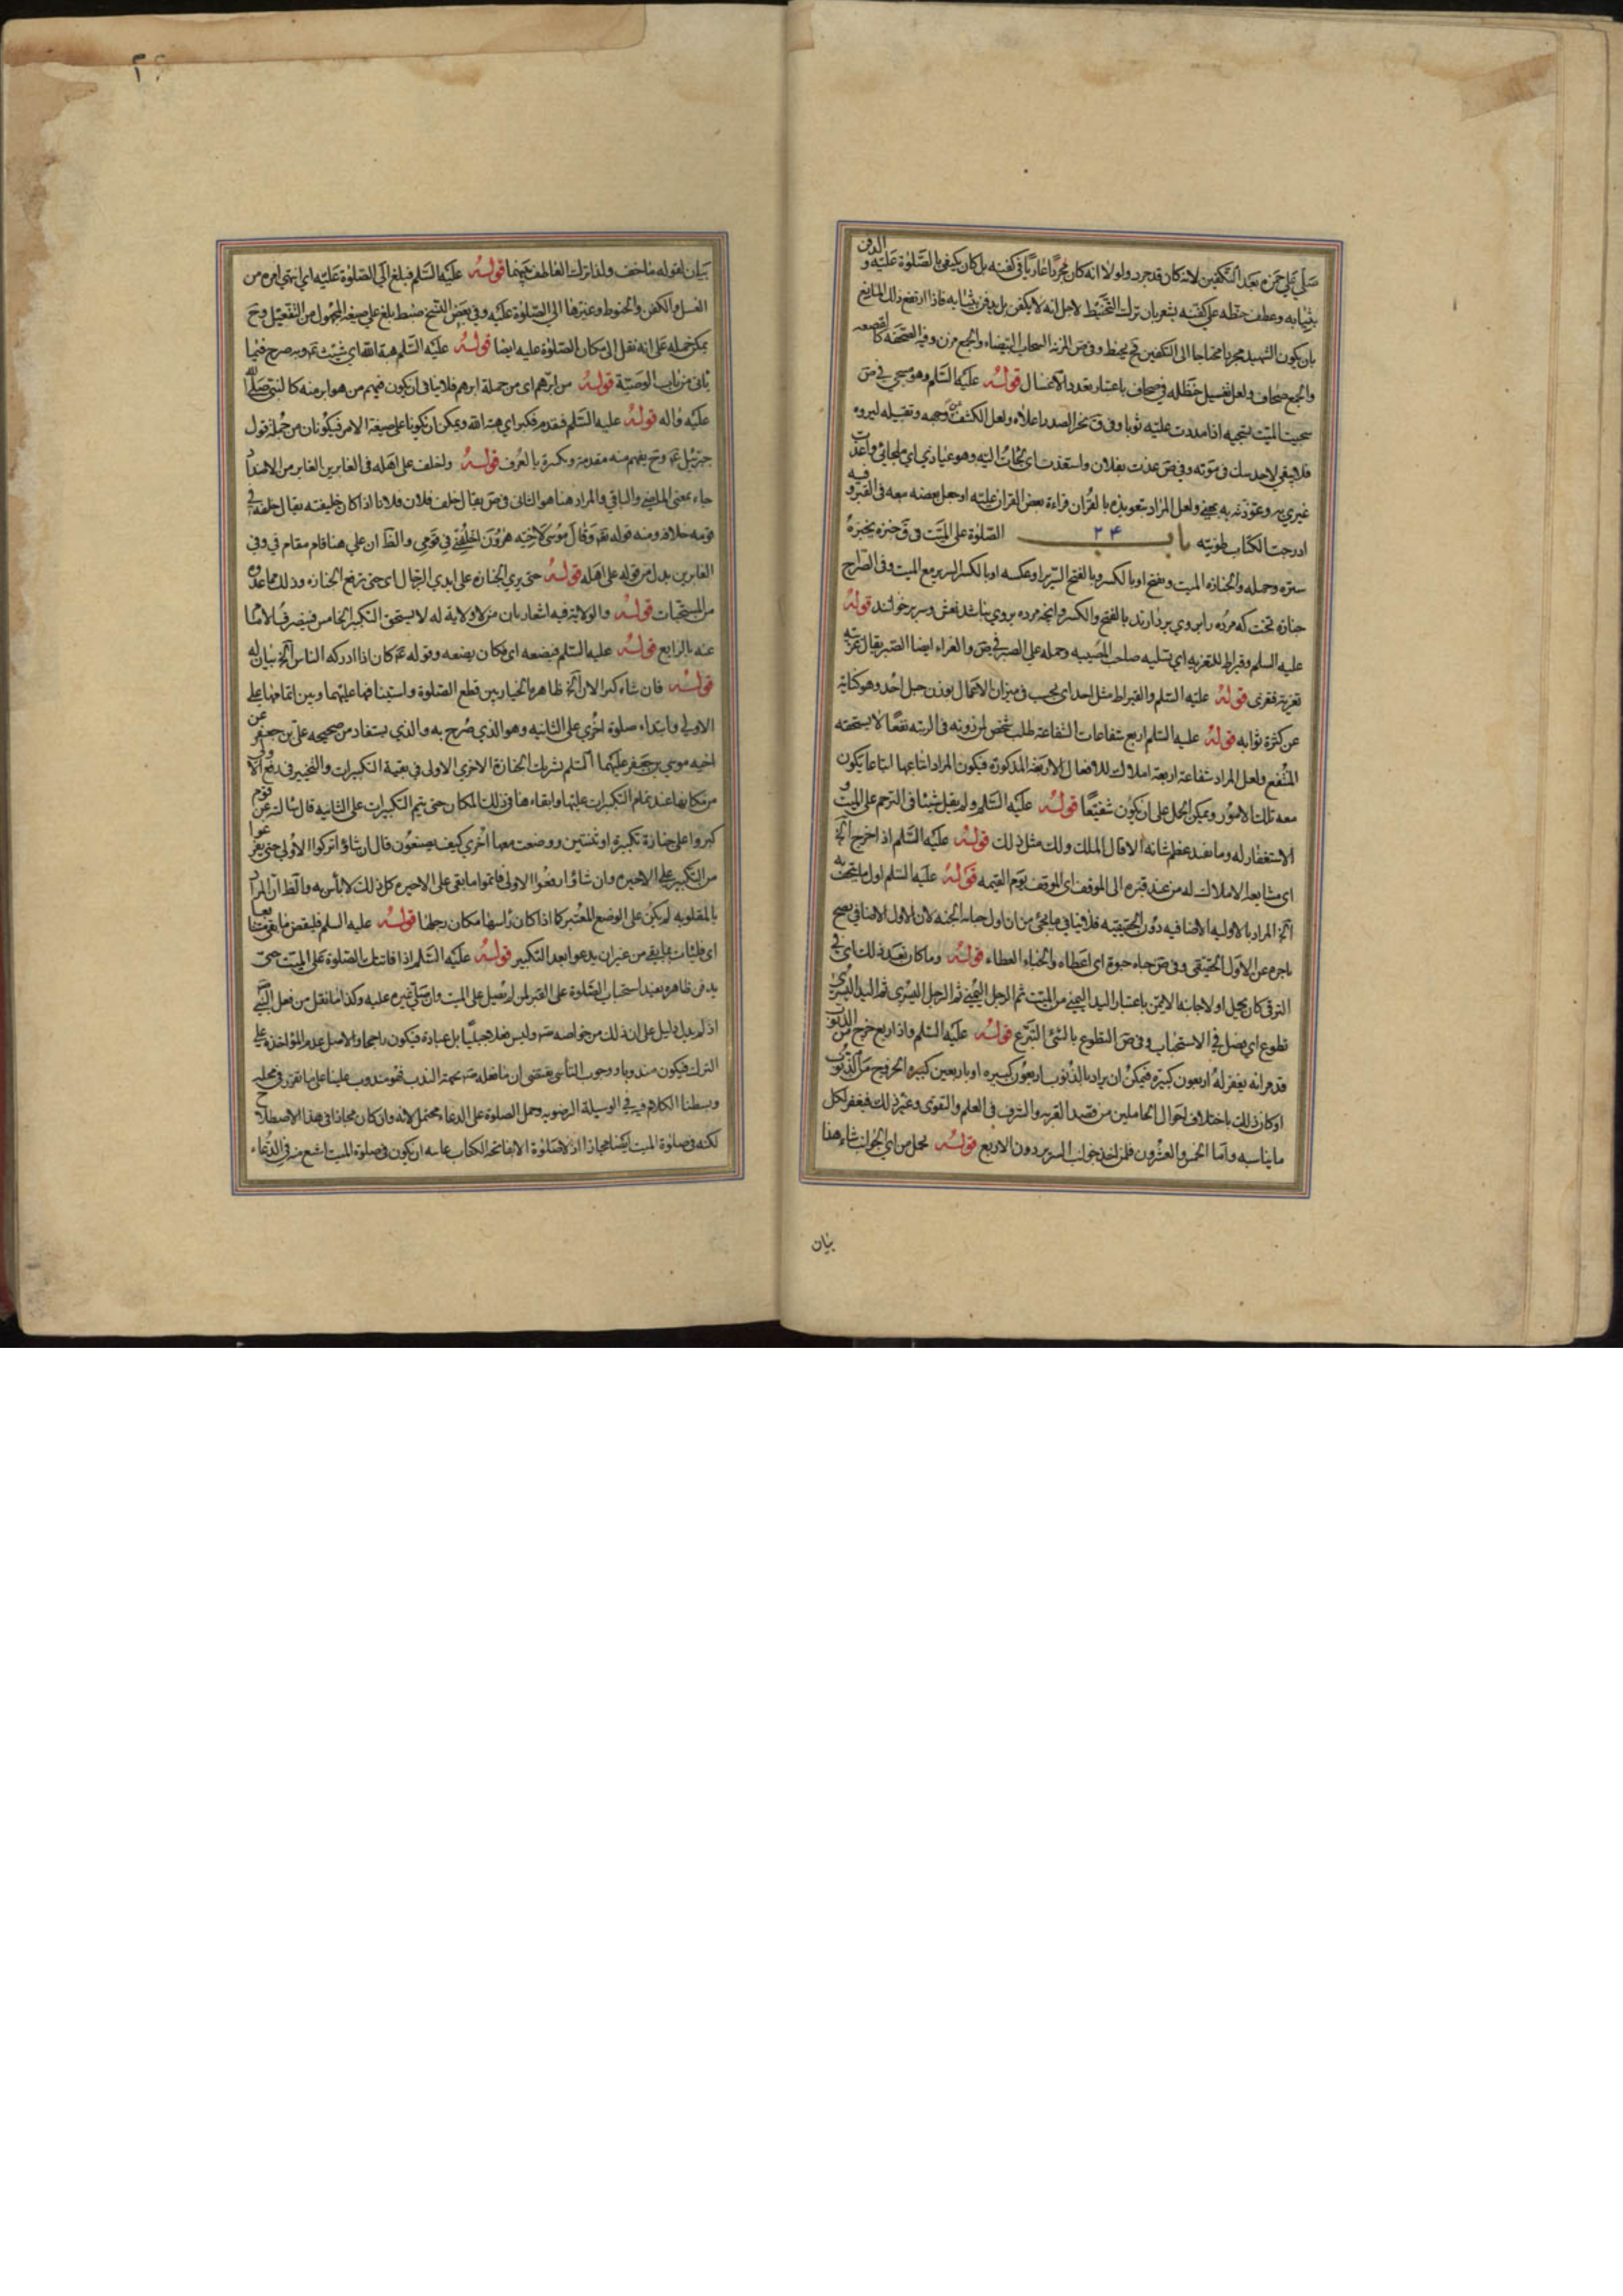 صلّي علي حمزه بعد التكفين لانه كان قد جرد ولولا انه كان مجردا عاريا في كفنه بل كان يكفي بالصّلوة عليه و الدفن
بثيابه وعطف حنطه علي كفنه يشعر بان ترك التحنيط لاجل انه لا يكفن بل يدفن بثيابه فاذا ارتفع ذلك المانع
بان يكون الشهيد مجردا محتاجا الى التكفين يحنط وفي ص المزنه السحاب البيضاء والجمع مزن وفيه الصحفه كالقصعه
والجمع صحاف ولعل تغسيل حنظله في صحاف باعتبار تعدد الاغسال قوله عليه السّلم وهو مسجى في ص
سجيت الميّت تسجيه اذا مددت عليه ثوبا وفي ق نحر الصدر اعلاه ولعل الكشف عن وجهه وتقبيله ليروه
فلا يبقي لاحد شك في موته وفي ص عذت بفلان واستعذت اي لجات اليه وهو عياذي اي ملجائي واعذت
غيري به وعوّذته به بمعني ولعل المراد بتعويذه بالقران قراءة بعض القران عليه او جعل بعضه معه في القبر و فيه
ادرجت الكتاب طويته باب ٢٤ الصّلوة على الميّت في ق جنزه يجنزه
ستره وجمله والجنازه الميت ويفتح او بالكسر وبالفتح السرير او عكسه او بالكسر السرير مع الميت وفي الصراح
جنازه تخت كه مرده را بروي بردارند بالفتح والكسر وانچه مرده بروي نباشد نعش وسرير خوانند قوله
عليه السلم وقيراط للتعزيه اي تسليه صاحب المصيبه وحمله علي الصبر في ص والعزاء ايضا الصبر يقال عزيته
تعزية فتعزى قوله عليه السّلم والقيراط مثل احد اي يحسب في ميزان الاعمال بوزن جبل احد وهو كناية
عن كثرة ثوابه قوله عليه السّلم اربع شفاعات الشفاعة طلب شخص لمن دونه في الرتبه نفعا لا يستحقه
المنتفع ولعل المراد شفاعة اربعة املاك للافعال الاربعه المذكوره فيكون المراد اشاعها اتباعا يكون
معه تلك الامور ويمكن الحمل علي ان يكون شفيعا قوله عليه السّلم ولم يقل شيئا في الترحم علي الميت و
الاستغفار له وما يفيد عظم شانه الا قال الملك ولك مثل ذلك قوله عليه السّلم اذا اخرج الخ
اي مشايعه الاملاك له من عند قبره الى الموقف اي الموقف يوم القيمه قوله عليه السّلم اول ما يتحف به
الخ المراد بالاوليه الاضافيه دون الحقيقيه فلا ينافي ما يجئ من ان اول حباءه الجنه لان الاول الاضافي يصح
تاخره عن الاول الحقيقي وفي ص حباه حبوة اي اعطاه والحباء العطاء قوله وما كان بعد ذلك اي في
الترقي كان يحمل اولا جانبه الايمن باعتبار اليد اليمني من الميّت ثم الرجل اليمني ثم الرجل اليسرى ثم اليد اليسرى
تطوع اي فضل في الاستحباب وفي ص التطوع بالشئ التبرّع قوله عليه السّلم واذا ربع خرج من الذنوب
قد مر انه يغفر له اربعون كبيرة فيمكن ان يراد بالذنوب اربعون كبيره او باربعين كبيره الخروج من الذنوب
او كان ذلك باختلاف احوال الحاملين من قصد القربه والشرف في العلم والتقوى وغير ذلك فيغفر لكل
ما يناسبه واما الخمس والعشرون فلمن اخذ جوانب السرير دون الاربع قوله تحمل من اي الجوانب شاء هذا
بيان
بيان لقوله ما خف ولذا ترك العاطف بينهما قوله عليه السّلم فبلغ الي الصّلوة عليه اي انتهى امره من
الغسل والكفن والحنوط وغيرها الي الصّلوة عليه وفي بعض النسخ ضبط بلغ علي صيغة المجهول من التفعيل وح
يمكن حمله على انه نقل الى مكان الصّلوة عليه ايضا قوله عليه السّلم هبة الله اي شيث ع وبه صرح فيما
ياتي من باب الوصيّة قوله من ابرهم اي من جملة ابرهم فلا ينافي ان يكون فيهم من هو ابر منه كالنبي صلّى الله
عليه واله قوله عليه السّلم فتقدم فكبر اي هبة الله ويمكن ان تكونا علي صيغة الامر فيكونان من جملة قول
جبرئيل ع وح يفهم منه مقدمه وكبره بالعرف قوله واخلف على اهله في الغابرين الغابر من الاضداد
جاء بمعنى الماضي والباقي والمراد هنا هو الثاني في ص يقال خلف فلان فلانا اذا كان خليفته يقال خلفه في
قومه خلافة ومنه قوله تع وقال موسى لاخيه هرون اخلفني في قومي والظ ان علي هنا قام مقام في وفي
الغابرين بدل من قوله على اهله قوله حتى يري الجنازه على ايدي الرجال اي حتى ترفع الجنازه وذلك مما عدوه
من المستحبات قوله والولاية فيه اشعار بان من لا ولاية له لا يستحق التكبير الخامس فيقصر في الاماميه
عنه بالرابع قوله عليه السّلم فيضعه اي فكان يضعه وقوله ع كان اذا ادركه الناس الخ بيان له
قوله فان شاء كبر الان الخ ظاهره بالخيار بين قطع الصّلوة واستينافها عليهما وبين اتمامها علي
الاولي وابتداء صلوة اخري على الثانيه وهو الذي صرح به والذي يستفاد من صحيحه علي بن جعفر عن
اخيه موسى بن جعفر عليهما السّلم تشريك الجنازة الاخري الاولى في بقية التكبيرات والتخيير في رفع الاولى
من مكانها عند تمام التكبيرات عليها وابقاءها في ذلك المكان حتى يتم التكبيرات على الثانيه قال سالته عن قوم
كبروا على جنازة تكبيرة او ثنتين ووضعت معها اخري كيف يصنعون قال ان شاؤا تركوا الاولى حتى يفرغوا
من التكبير علي الاخيره وان شاؤا رفعوا الاولى فاتموا ما بقي على الاخيره كل ذلك لا باس به والظ ان المراد
بالمقلوبه لم يكن على الوضع المعتبر كما اذا كان راسها مكان رجلها قوله عليه السلم فليقض ما بقي متتابعا
اي فليات بما بقي من غير ان يدعو بعد التكبير قوله عليه السّلم اذا فاتتك الصّلوة على الميّت حتى
يدفن ظاهره يفيد استحباب الصّلوة على القبر لمن لم يصل على الميت وان صلّي غيره عليه وكذا ما نقل من فعل النبي ص
اذ لم يدل دليل على ان ذلك من خواصه ص وليس فعلا جبليا بل عبادة فيكون راجحا والاصل عدم المؤاخذة علي
الترك فيكون مندوبا ووجوب التاسي يقتضي ان ما فعله ص بجهة الندب فهو مندوب علينا على ما تقرر في محله
وبسطنا الكلام فيه في الوسيلة الرضويه وحمل الصلوة على الدعاء محتمل لانه وان كان مجازا في هذا الاصطلاح
لكنه في صلوة الميت ايضا مجاز اذ لا صلوة الا بفاتحة الكتاب غايته ان يكون في صلوة الميت اشيع منه في الدعاء